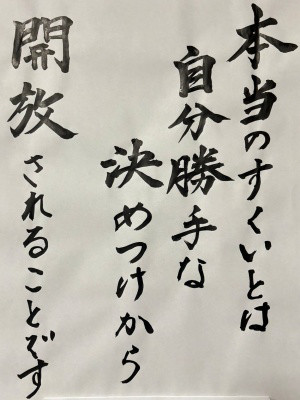 本当のすくいとは
自分勝手な
決めつけから
開放されることです